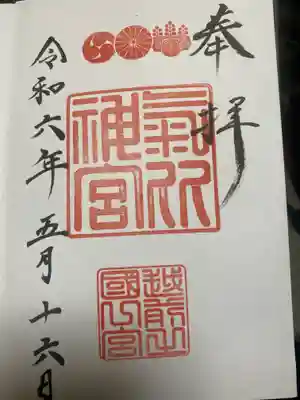 奉拝
氣比
神宮
越前之
國一宮
令和六年五月十六日